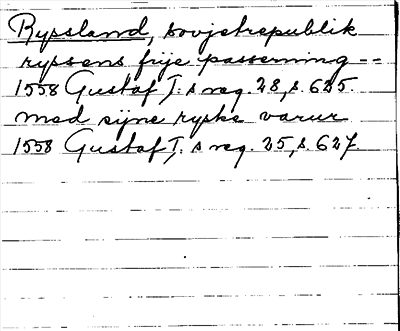 Ryssland, sovjetrepublik
ryssens frije passering --
1558 Gustaf I:s reg. 28, s. 625.
med sijne ryske varur
1558 Gustaf I:s reg. 25, s. 627.